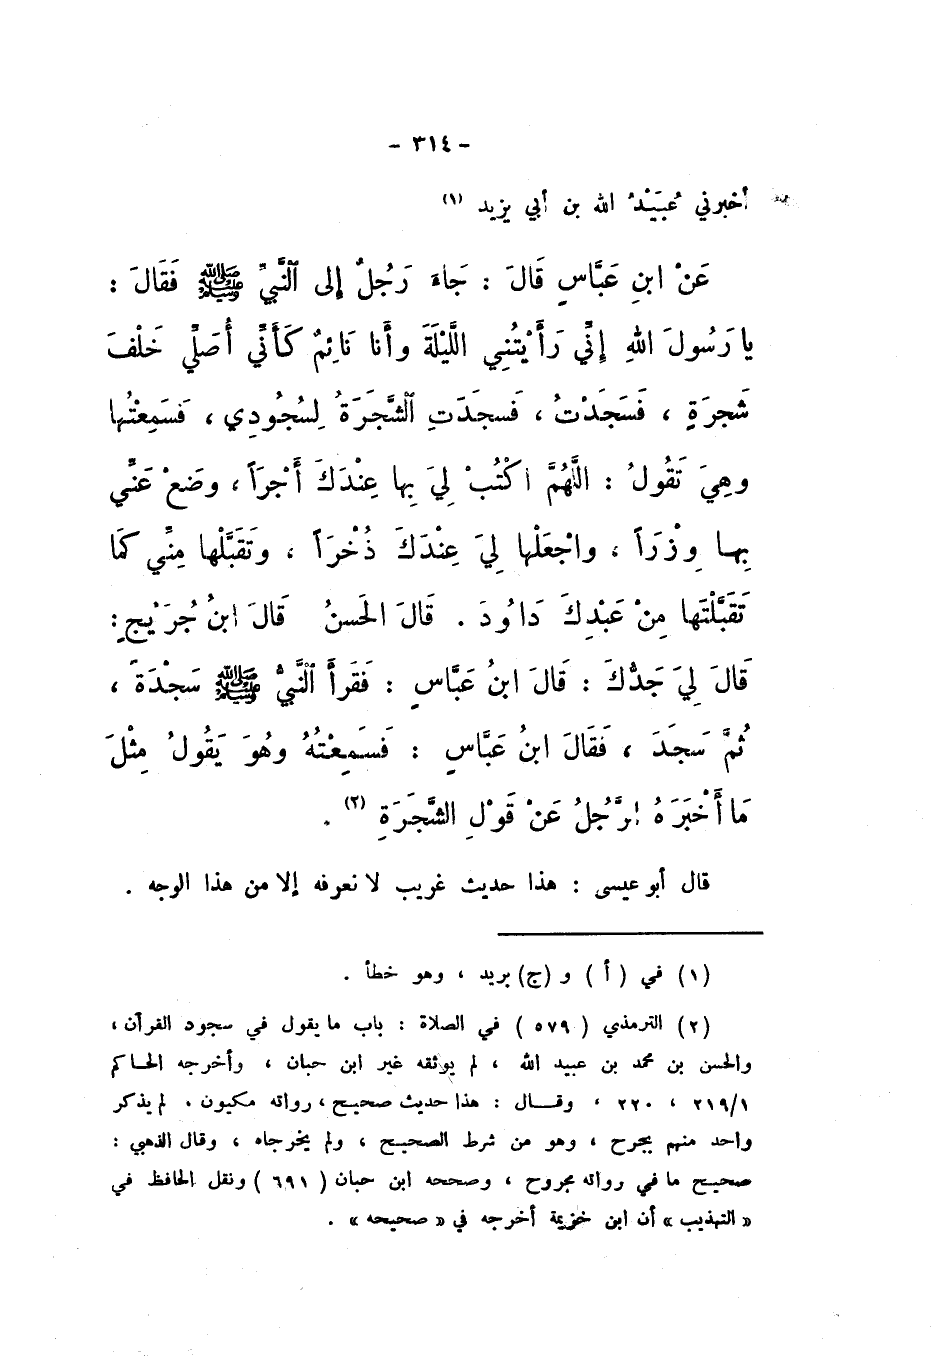 - ٣١٤ -
أخبرني عُبَيْدُ الله بن أبي يزيد (١)
عَنْ ابنِ عَبَّاسٍ قَالَ : جَاءَ رَجُلٌ إلى النَّبيِّ ﷺ فَقَالَ :
يا رَسُولَ اللهِ إنِّي رَأَيْتُنِي اللَّيْلَةَ وأَنا نَائِمٌ كَأَنِّي أُصَلِّي خَلْفَ
شَجرَةٍ ، فَسَجَدْتُ ، فَسجدَتِ الشَّجَرَةُ لِسُجُودِي ، فَسَمِعْتُها
وهِيَ تَقُولُ : اللَّهُمَّ اكْتُبْ لِيَ بِها عِنْدَكَ أَجْرَاً ، وضَعْ عَنِّي
بِهـا وِزْرَاً ، واجْعَلْها لِيَ عِنْدَكَ ذُخْرَاً ، وتَقَبَّلْها مِنِّي كَمَا
تَقَبَّلْتَها مِنْ عَبْدِكَ دَاوُدَ . قَالَ الحَسنُ قَالَ ابنُ جُرَيْجٍ :
قَالَ لِيَ جَدُّكَ : قَالَ ابنُ عَبَّاسٍ : فَقَرأَ النَّبيُّ ﷺ سَجْدَةً ،
ثُمَّ سَجدَ ، فَقَالَ ابنُ عَبَّاسٍ : فَسَمِعْتُهُ وهُوَ يَقُولُ مِثْلَ
مَا أَخْبَرَهُ الرَّجُلُ عَنْ قَوْلِ الشَّجَرَةِ (٢) .
قال أبو عيسى : هذا حديث غريب لا نعرفه إلا من هذا الوجه .
(١) في ( أ ) و (ج) بريد ، وهو خطأ .
(٢) الترمذي ( ٥٧٩ ) في الصلاة : باب ما يقول في سجود القرآن ،
والحسن بن محمد بن عبيد الله ، لم يوثقه غير ابن حبان ، وأخرجه الحـاكم
٢١٩/١ ، ٢٢٠ ، وقـــال : هذا حديث صحيح ، رواته مكيون . لم يذكر
واحد منهم بجرح ، وهو من شرط الصحيح ، ولم يخرجاه ، وقال الذهبي :
صحيح ما في رواته مجروح ، وصححه ابن حبان ( ٦٩١ ) ونقل الحافظ في
« التهذيب » أن ابن خزيمة أخرجه في « صحيحه » .